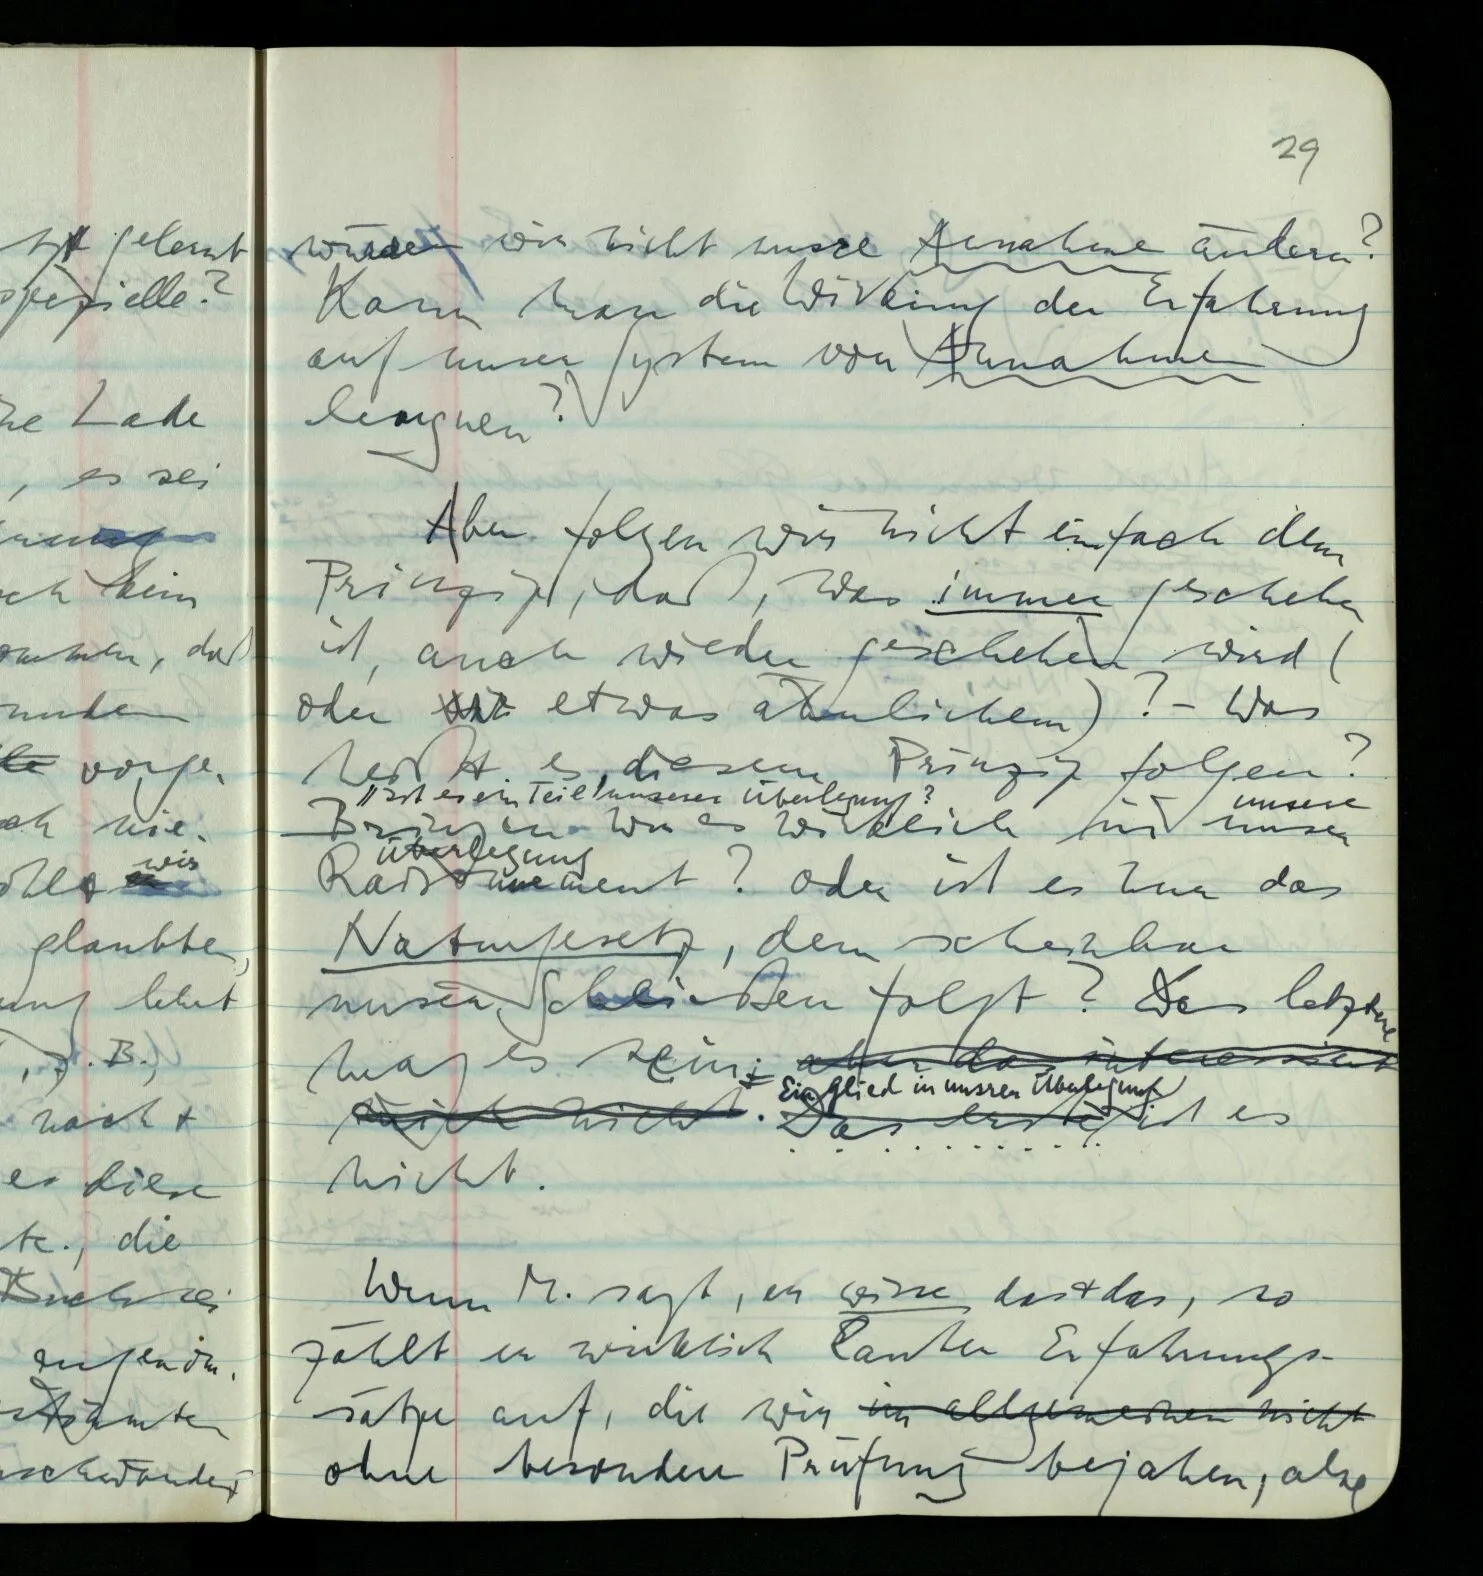 29
t gelernt
spezielle?
Lade
, es sei
kein
ommen, daß
anderen
vorge-
nie-
wir
glaubten,
lehrt
, z.B.,
nach +
er diese
etc., die
Buch sei
angenom-
würden wir nicht unsre Annahme ändern?
Kann man die Wirkung der Erfahrung
auf unser System von Annahmen
leugnen?
Aber folgen wir nicht einfach dem
Prinzip, daß, was immer geschehen
ist, auch wieder geschehen wird (
oder etwas ähnlichem)? – Was
heißt es, diesem Prinzip folgen?
"Ist es ein Teil unserer Überlegung?
Bringen wir es wirklich in unser
unsere
Überlegung
Raisonnement? Oder ist es nur das
Naturgesetz, dem scheinbar
unser Schließen folgt? Das letztere
mag es sein; aber das interessiert
mich nicht. Das erste ist es
Ein Glied in unsrer Überlegung
nicht.
Wenn M. sagt, er wisse das + das, so
zählt er wirklich lauter Erfahrungs-
sätze auf, die wir im allgemeinen nicht
ohne besondere Prüfung bejahen, also